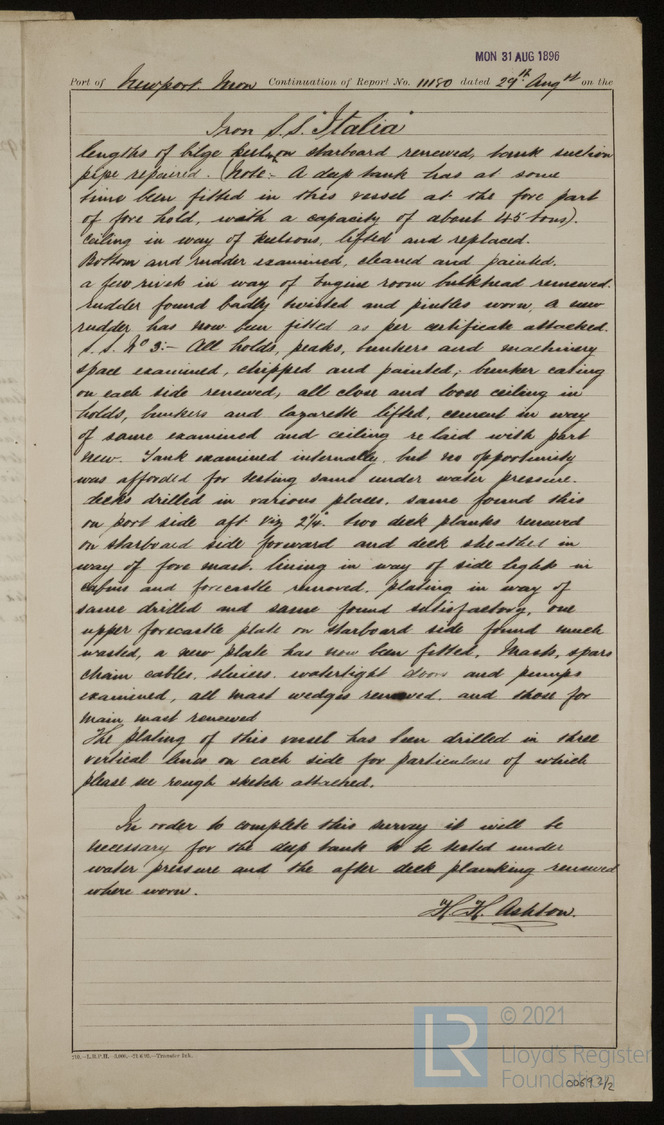 MON 31 AUG 1896
Port of Newport Mon Continuation of Report No. 11180 dated 29th Augst on the
Iron S.S. "Italia"
lengths of bilge keelson starboard renewed, tank suction
pipe repaired. (Note:- A deep tank has at some
time been fitted in this vessel at the fore part
of fore hold, with a capacity of about 45 tons).
Ceiling in way of keelsons, lifted and replaced.
Bottom and rudder examined, cleaned and painted.
a few rivets in way of Engine room bulkhead renewed.
rudder found badly twisted and pintles worn, a new
rudder has now been fitted as per certificate attached.
S.S. No 3:- All holds, peaks, bunkers and machinery
space examined, chipped and painted; bunker casing
on each side renewed, all close and loose ceiling in
holds, bunkers and lazarette lifted, cement in way
of same examined and ceiling relaid with part
new. Tank examined internally, but no opportunity
was afforded for testing same under water pressure.
decks drilled in various places, same found thin
on port side aft viz 2¼". two deck planks renewed
on starboard side forward and deck sheathed in
way of fore mast. lining in way of side lights in
cabins and forecastle removed, plating in way of
same drilled and same found satisfactory, one
upper forecastle plate on starboard side found much
wasted, a new plate has now been fitted. Masts, spars
chain cables, sluices, watertight doors and pumps
examined, all mast wedges removed and those for
main mast renewed
The plating of this vessel has been drilled in three
vertical lines on each side for particulars of which
please see rough sketch attached.
In order to complete this survey it will be
necessary for the deep tank to be tested under
water pressure and the after deck planking renewed
where worn.
H. H. Ashton.
210.—L.R.P.H. 3,000.— Transfer Ink.
LR
© 2021
Lloyd's Register
Foundation
0069 2/2